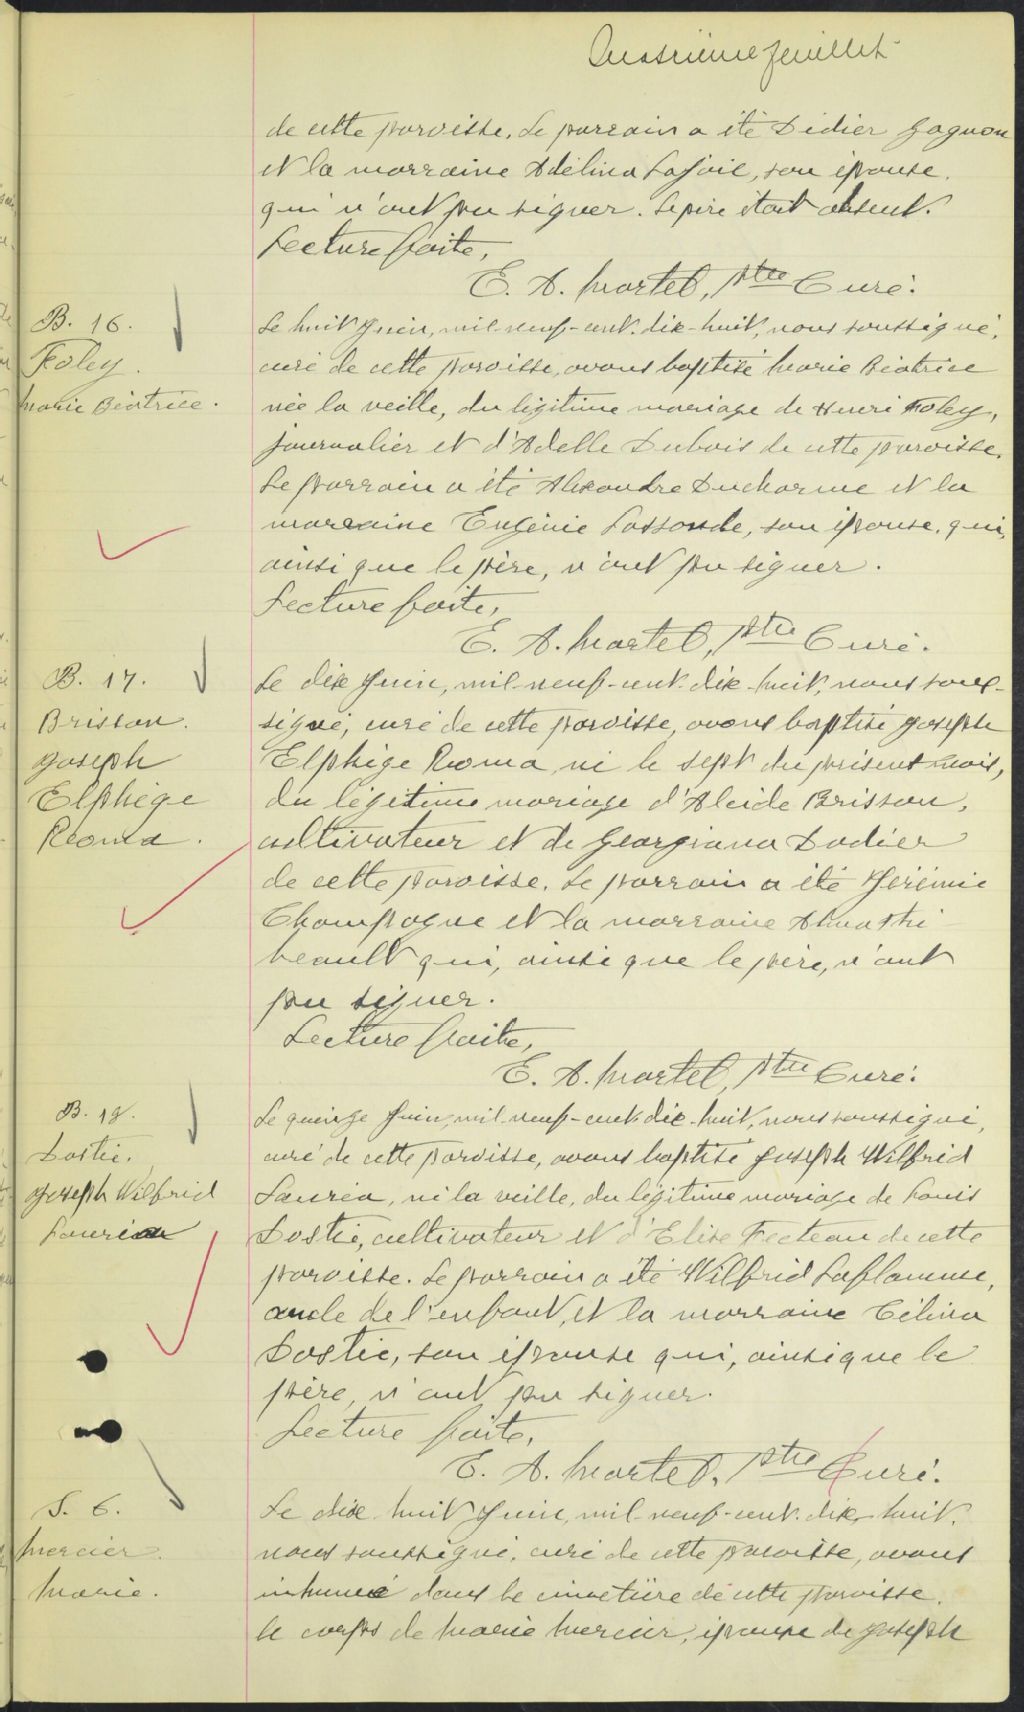 Quatrième feuillet
de cette paroisse. Le parrain a été Didier Gagnon
et la marraine Adélina Lajoie, son épouse.
qui n'ont pu signer. Le père était absent.
Lecture faite,
E. A. Martel, Ptre Curé.
B. 16.
Foley.
Marie Béatrice.
Le huit Juin, mil-neuf-cent-dix-huit, nous soussigné,
curé de cette paroisse, avons baptisé Marie Béatrice
née la veille, du légitime mariage de Henri Foley,
journalier et d'Adelle Dubois de cette paroisse.
Le parrain a été Alexandre Ducharme et la
marraine Eugénie Lassonde, son épouse, qui,
ainsi que le père, n'ont pu signer.
Lecture faite,
E. A. Martel, Ptre Curé.
B. 17.
Brisson.
Joseph
Elphège
Roma.
Le dix Juin, mil-neuf-cent-dix-huit, nous sous-
signé, curé de cette paroisse, avons baptisé Joseph
Elphège Roma, né le sept du présent mois,
du légitime mariage d'Alcide Brisson,
cultivateur et de Georgiana Dodier
de cette paroisse. Le parrain a été Jérémie
Champagne et la marraine Alma Thi
beault qui, ainsi que le père, n'ont
pu signer.
Lecture faite,
E. A. Martel, Ptre Curé.
B. 18.
Dostie.
Joseph Wilfrid
Lauréa
Le quinze Juin, mil-neuf-cent-dix-huit, nous soussigné,
curé de cette paroisse, avons baptisé Joseph Wilfrid
Lauréa, né la veille, du légitime mariage de Louis
Dostie, cultivateur et d'Elise Fecteau de cette
paroisse. Le parrain a été Wilfrid Laflamme,
oncle de l'enfant, et la marraine Célina
Dostie, son épouse qui, ainsi que le
père, n'ont pu signer.
Lecture faite,
E. A. Martel, Ptre Curé.
S. 6.
Mercier.
Marie.
Le dix-huit Juin, mil-neuf-cent-dix-huit,
nous soussigné, curé de cette paroisse, avons
inhumé dans le cimetière de cette paroisse,
le corps de Marie Mercier, épouse de Joseph